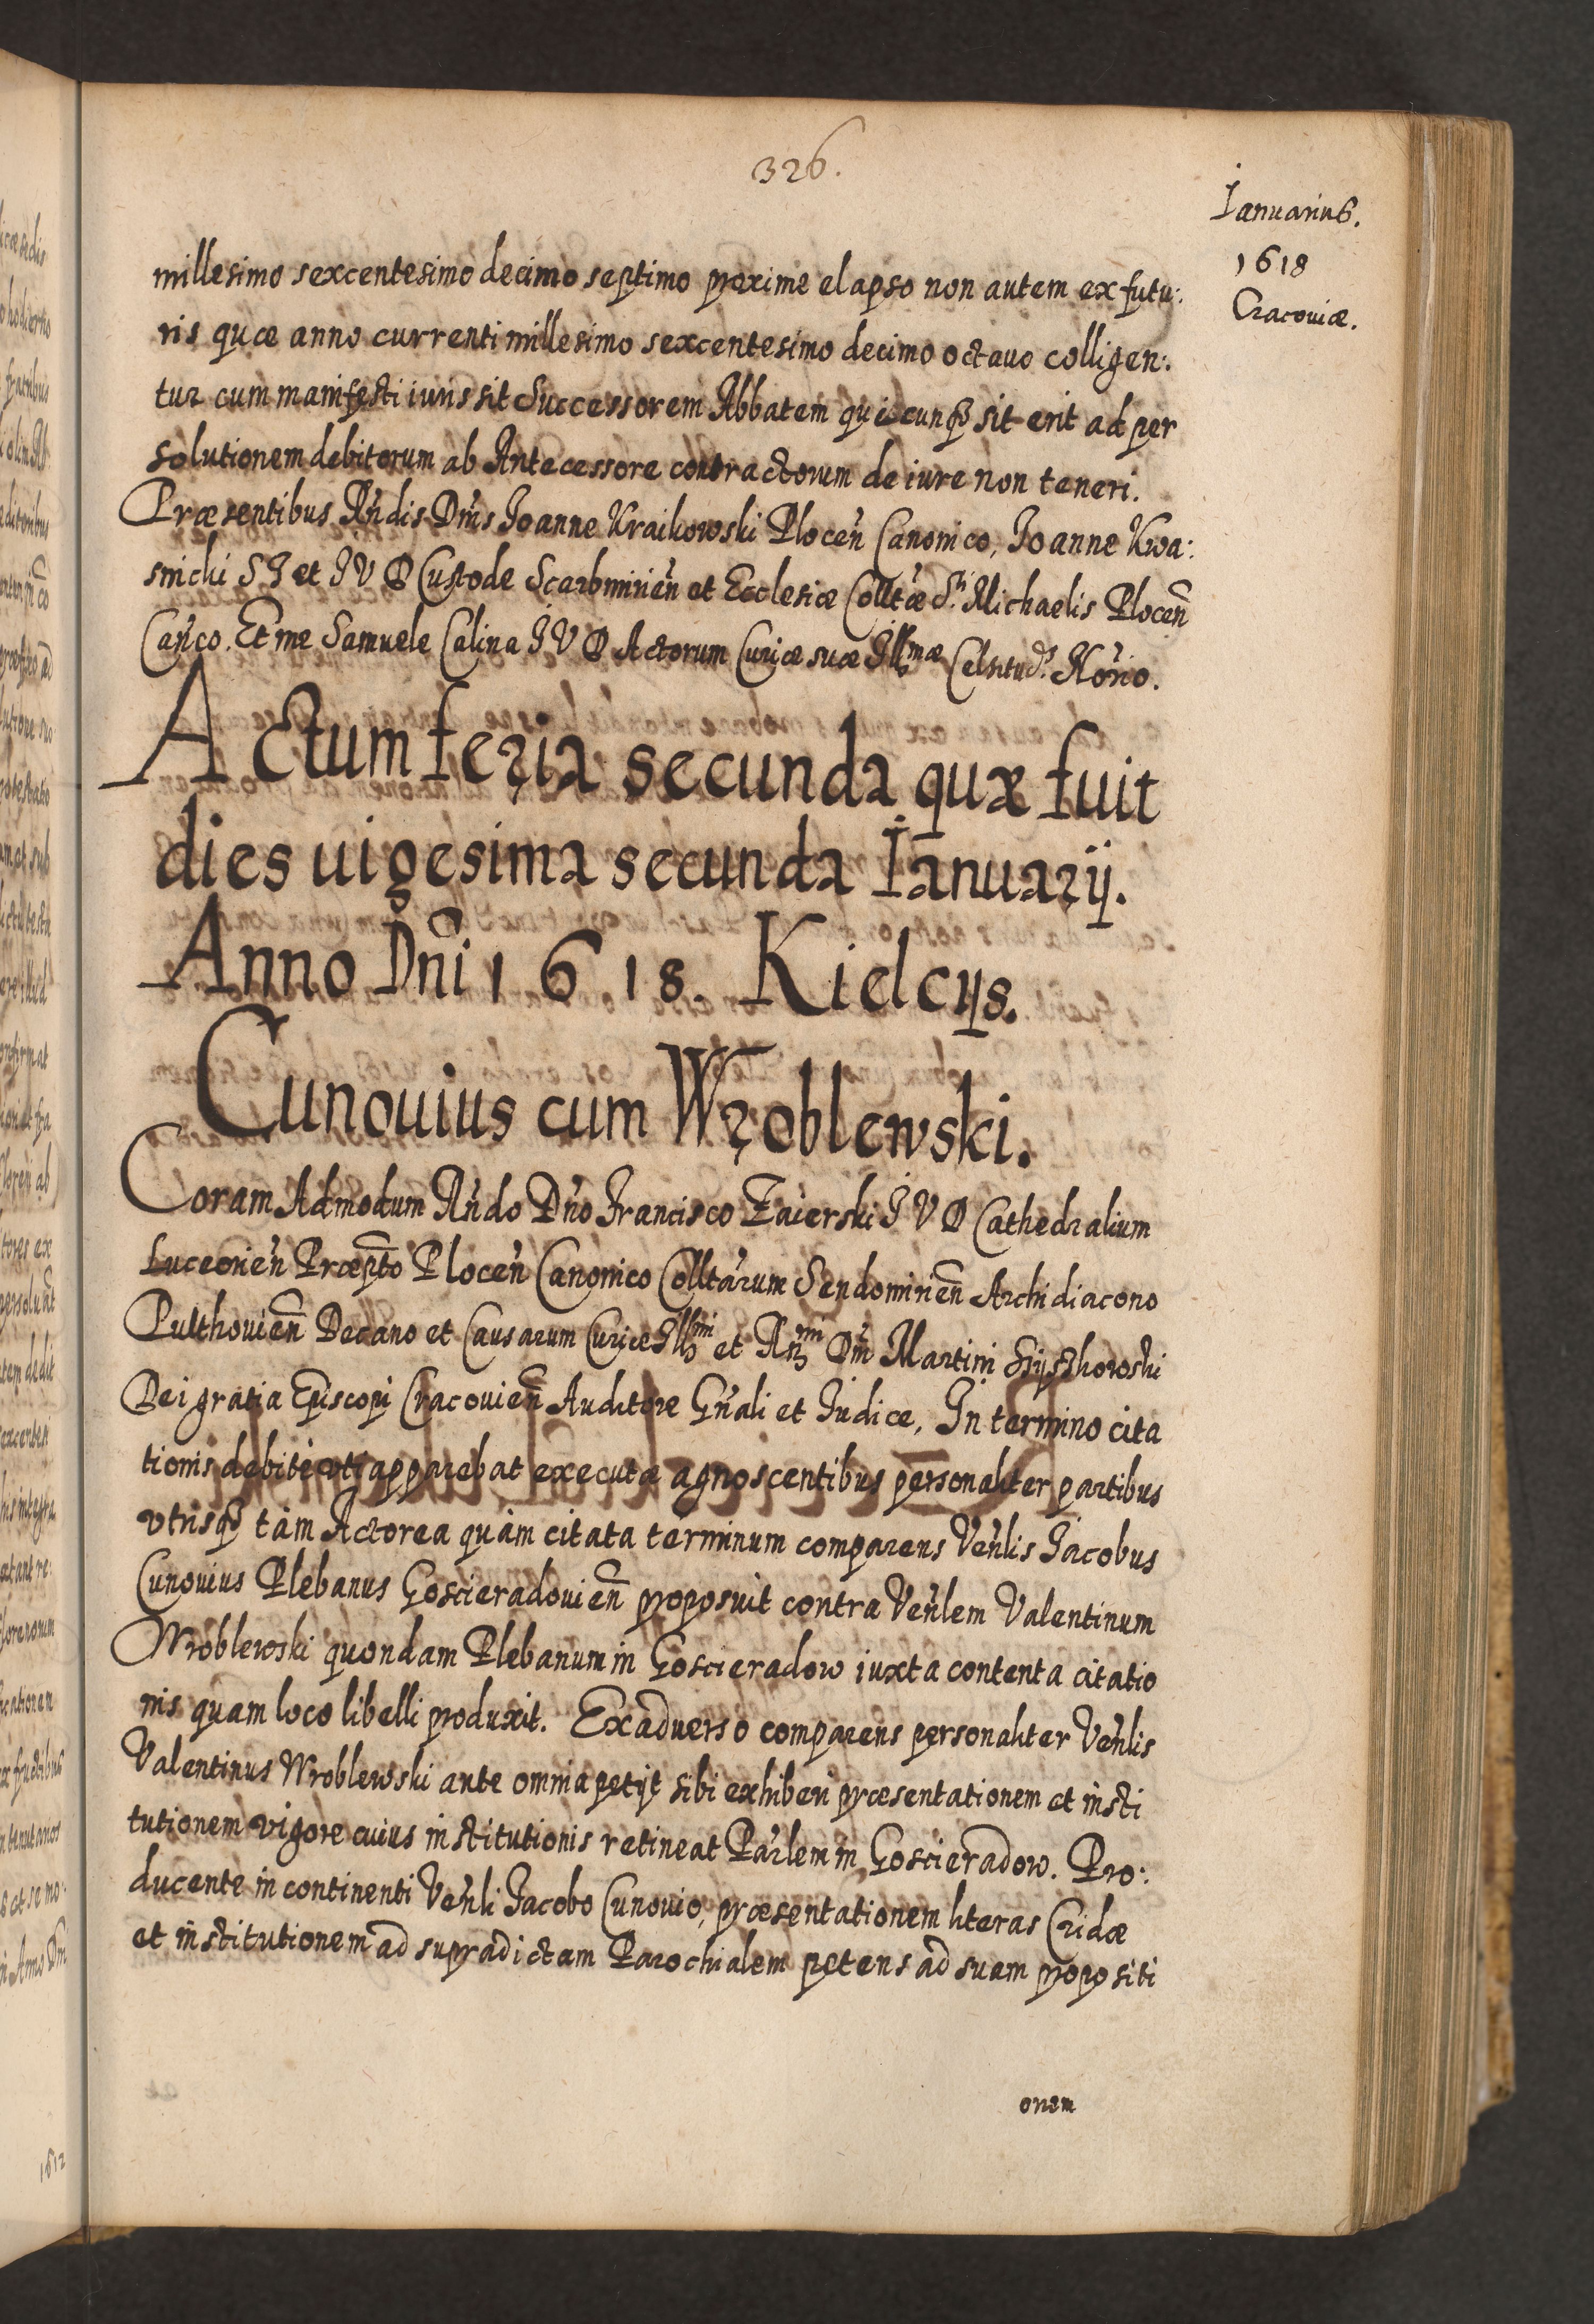 326.
Ianuarius.
1618
Cracoviæ.
millesimo sexcentesimo decimo septimo proxime elapso non autem ex futu:
ris quæ anno currenti millesimo sexcentesimo decimo octauo colligen:
tur cum manifesti iuris sit Successorem Abbatem quicunq3 sit erit ad per
solutionem debitorum ab Antecessore contractorum de iure non teneri.
Præsentibus Rndis Dnis Joanne Kraikowski Plocen Canonico, Joanne Kwa:
snicki S J et J V D Custode Scarbmirien et Ecclesiæ Colltæ Sti Michaelis Plocen
Canco. Et me Samuele Calina J V D Actorum Curiæ suæ Illmæ Celsitudis Norio.
Actum feria secunda quæ fuit
dies uigesima secunda Ianuarij.
Anno Dni 1618. Kielcijs.
Cunouius cum Wroblewski.
Coram Admodum Rndo Dno Francisco Zaierski J V D Cathedralium
Luceorien Præpto Plocen Canonico Colltarum Sendomirien Archidiacono
Pulthouien Decano et Causarum Curiæ Illmi et Rmi Dni Martini Szyszkowski
Dei gratia Episcopi Cracouien Auditore Gnali et Judice, In termino cita
tionis debite vti apparebat executæ agnoscentibus personaliter partibus
vtrisq3 tàm Actorea quàm citata terminum comparens Venlis Jacobus
Cunouius Plebanus Goscieradouien proposuit contra Venlem Valentinum
Wroblewski quondam Plebanum in Goscieradow iuxta contenta citatio
nis quam loco libelli produxit. Ex aduerso comparens personaliter Venlis
Valentinus Wroblewski ante omnia petijt sibi exhiberi præsentationem et insti
tutionem vigore cuius institutionis retineat Parlem in Goscieradow. Pro:
ducente in continenti Venli Jacobo Cunouio, præsentationem literas Cridæ
et institutionem ad supradictam Parochialem petens ad suam propositi
onem